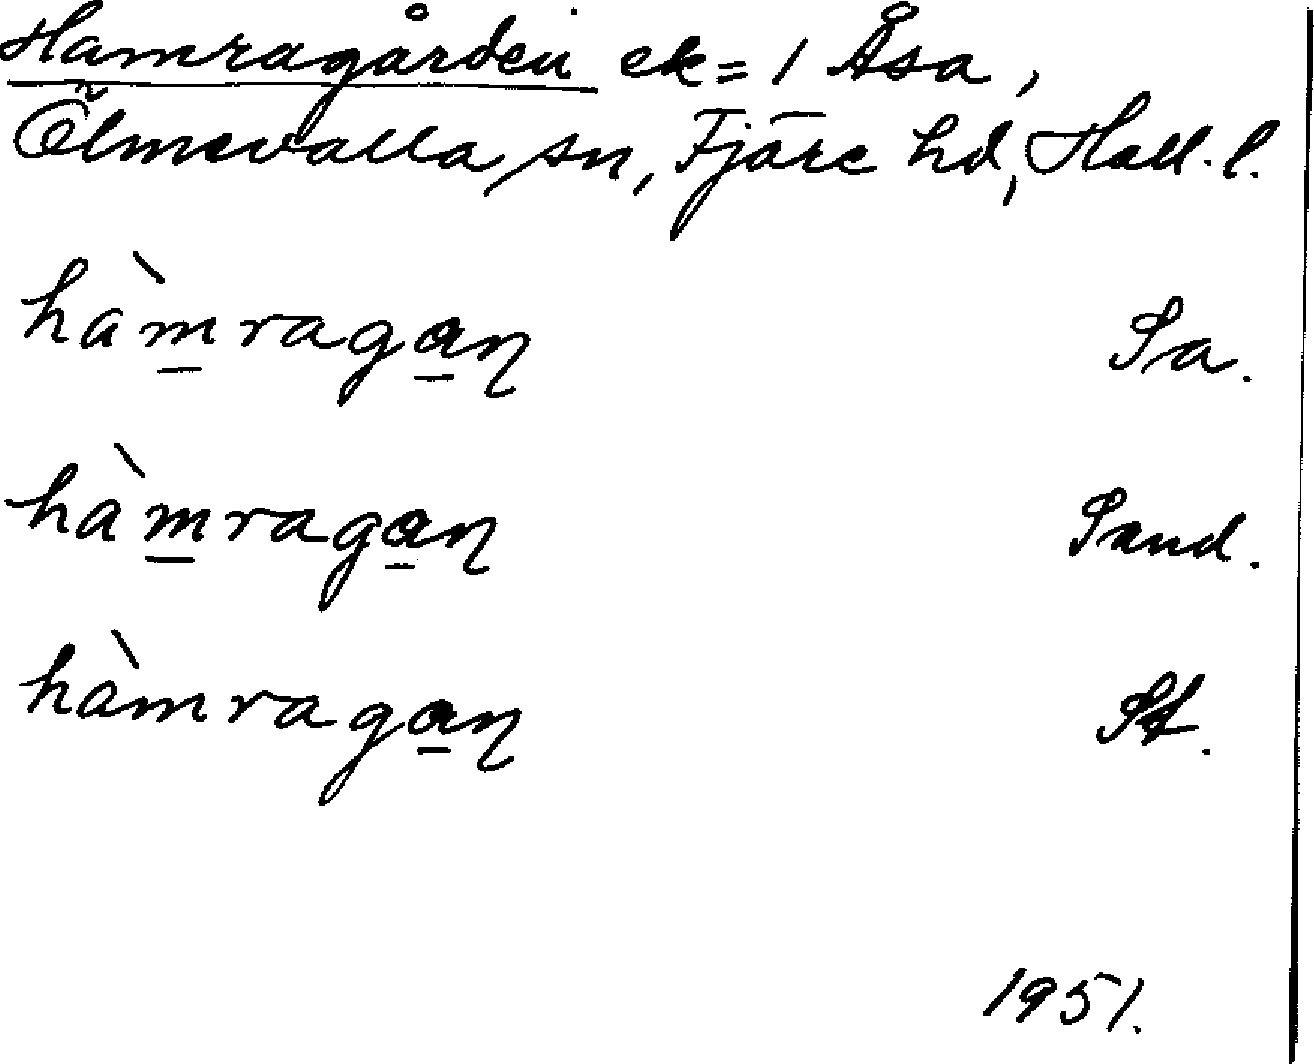 Hamragården ek = 1 Åsa,
Ölmevalla sn, Fjäre hd, Hall. l.
hàm̲raga̲ɳ Sa.
hàm̲raga̲ɳ Sand.
hàmraga̲ɳ St.
1951.